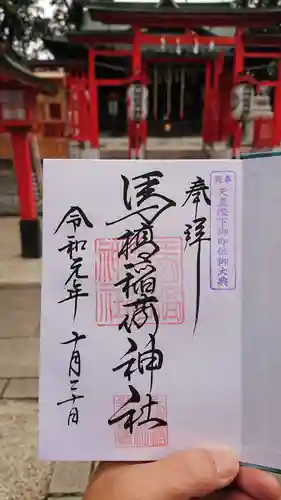 奉拝
奉祝 天皇陛下御即位御大典
馬橋稲荷神社
令和元年
十月三十日